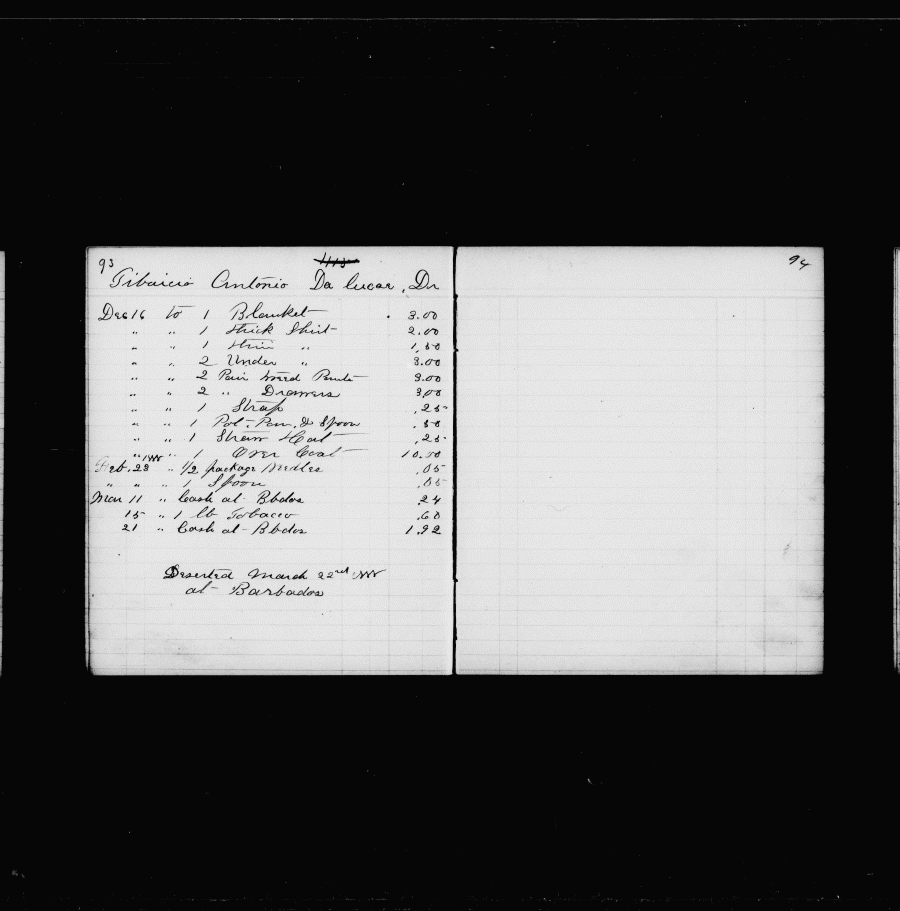 93
Antonio Da Lucar, Dr
Dec 16 to 1 Blanket 3.00
" " 1 Thick Shirt 2.00
" " 1 Thin " 1.50
" " 2 Under " 3.00
" " 2 Pair Pants 3.00
" " 2 " Drawers 3.00
" " 1 Strap .25
" " 1 Pot, Pan, & Spoon .50
" " 1 Straw Hat .25
" " 1 Over Coat 10.00
Feb. 28 " 1/2 package Needles .05
" " " 1 Spoon .05
Mar 11 " Cash at Bbdos .24
15 " 1 lb Tobacco .60
21 " Cash at Bbdos 1.92
Deserted March 22nd
at Barbados
94